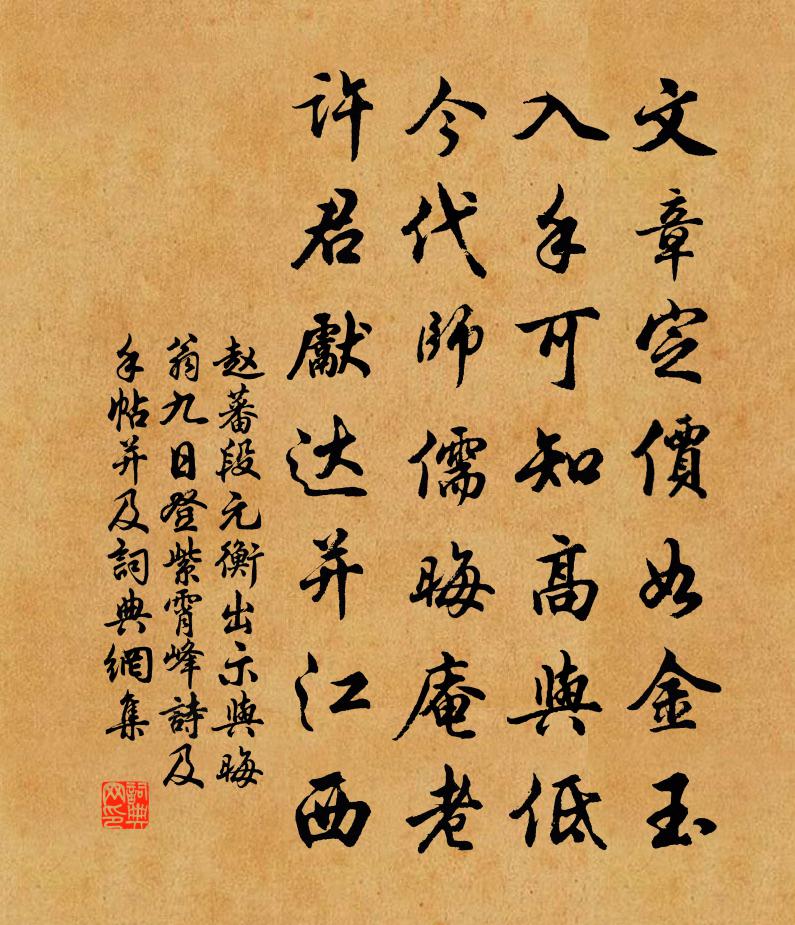 文章定價如金玉
入手可知高與低
今代師儒晦庵老
许君獻达并江西
赵蕃段元衡出示與晦
翁九日登紫霄峰詩及
手帖并及詞典網集
詞典
网印